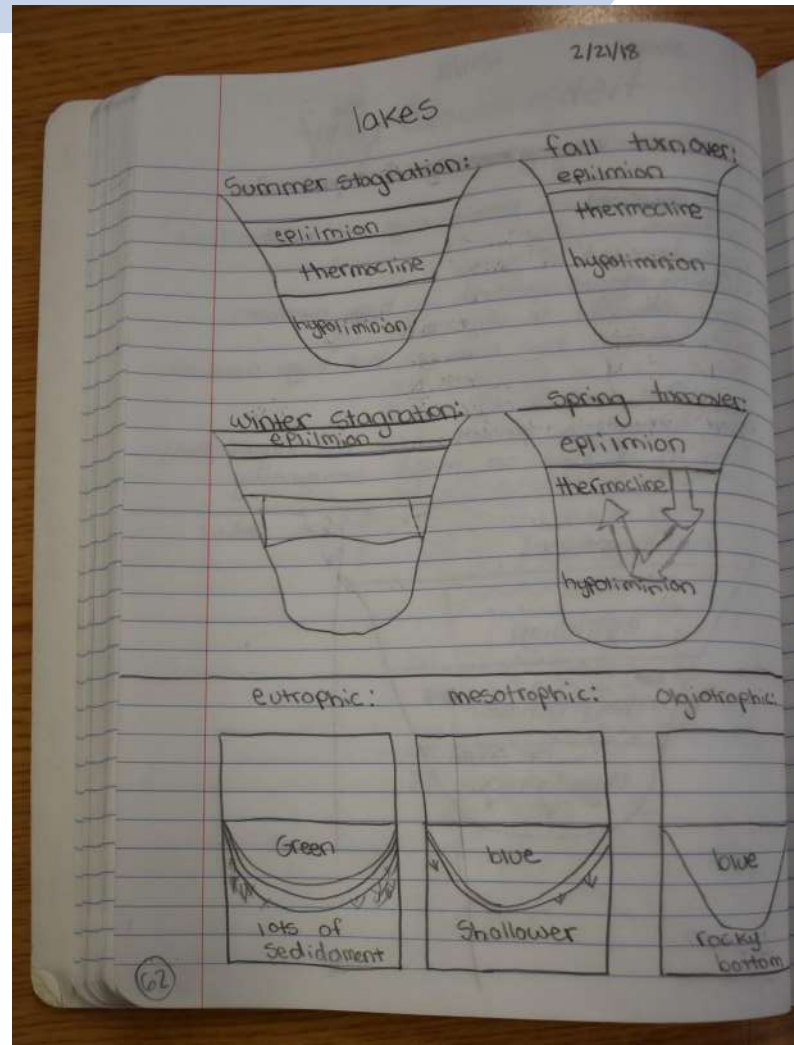 2/21/18
lakes
Summer stagnation:
eplilmion
thermocline
hypoliminion
fall turnover:
eplilmion
thermocline
hypoliminion
winter stagnation:
eplilmion
spring turnover:
eplilmion
thermocline
hypoliminion
eutrophic:
Green
lots of
sedidament
mesotrophic:
blue
Shallower
olgiotrophic:
blue
rocky
bottom
62